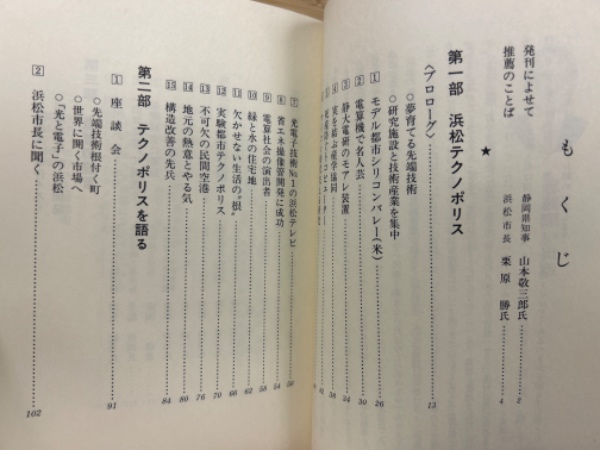 もくじ
発刊によせて 静岡県知事 山本敬三郎氏……2
推薦のことば 浜松市長 栗原 勝氏……4
★
第一部 浜松テクノポリス
〈プロローグ〉……13
○夢育てる先端技術
○研究施設と技術産業を集中
1 モデル都市シリコンバレー(米)……26
2 電算機で名人芸……30
3 静大電研のモアレ装置……34
4 実を結ぶ産学協同……38
7 光電子技術No.1の浜松テレビ……50
8 省エネ撮像管開発に成功……54
9 電算社会の演出者……58
10 緑と水の住宅地……62
11 欠かせない生活の〝根〟……66
12 実験都市テクノポリス……70
13 不可欠の民間空港……76
14 地元の熱意とやる気……80
15 構造改善の先兵……84
第二部 テクノポリスを語る
1 座談会……91
○先端技術根付く町
○世界に開く市場へ
○「光と電子」の浜松
2 浜松市長に聞く……102